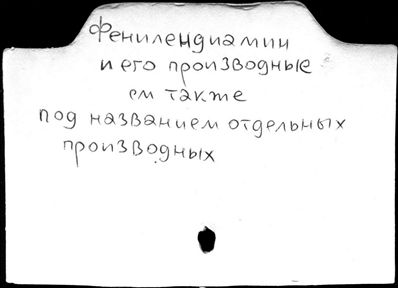 Фенилендиамин
и его производные
см также
под названием отдельных
производных